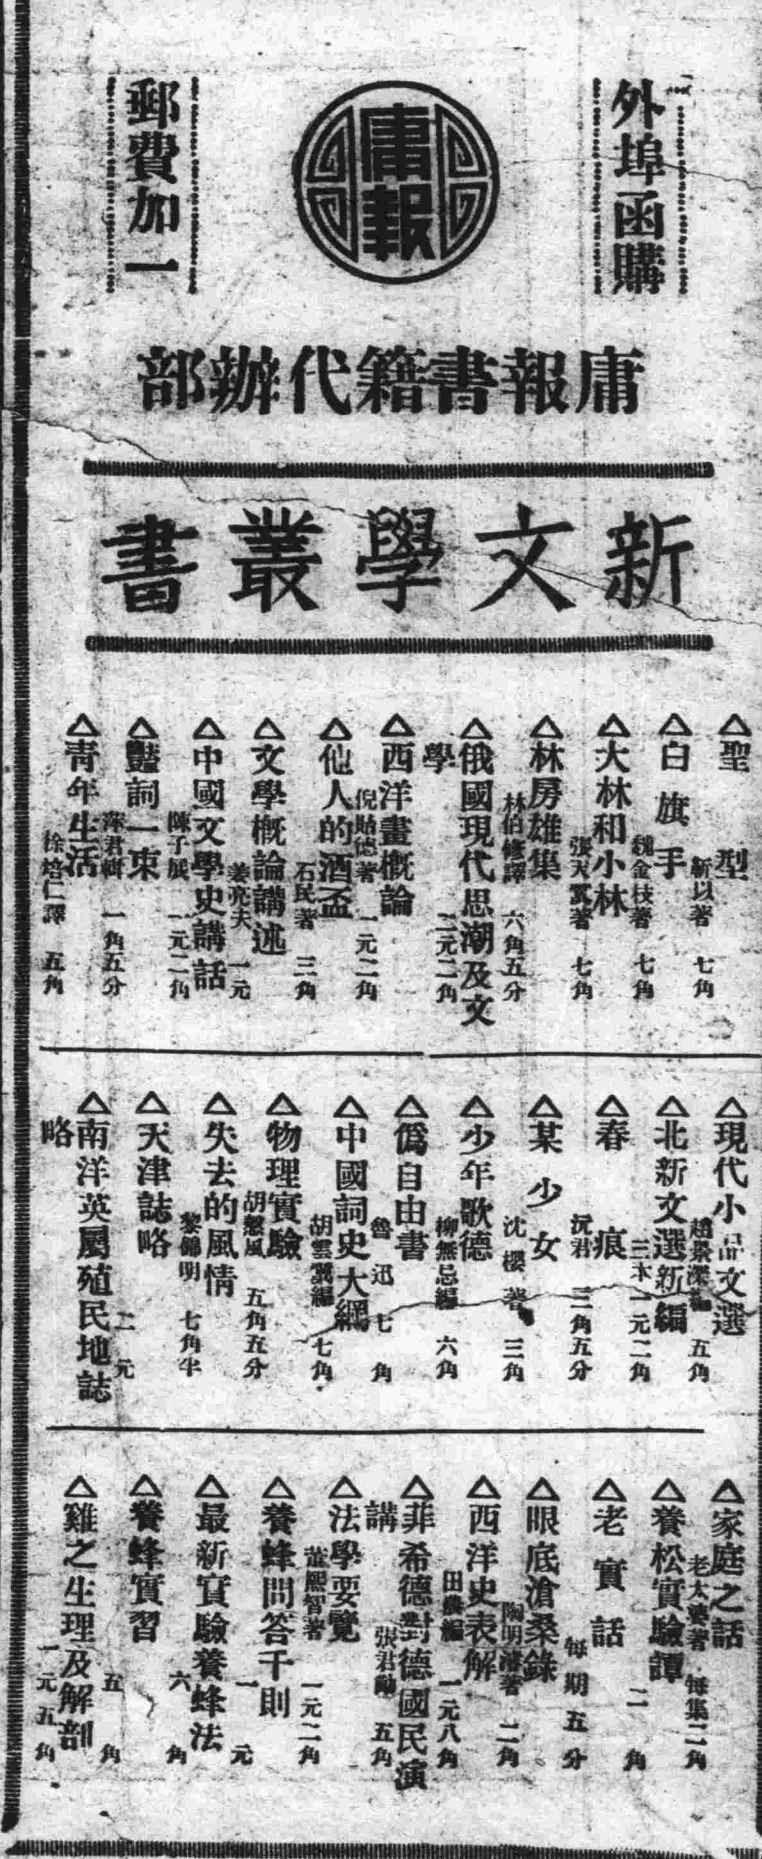 外埠函購
庸報
郵費加一
庸報書籍代辦部
新文學叢書
△聖型
靳以著 七角
△白旗手
魏金枝著 七角
△大林和小林
張天翼著 七角
△林房雄集
林伯修譯 六角五分
△俄國現代思潮及文
學
二元二角
△西洋畫概論
倪貽德著 一元二角
△他人的酒盃
石民著 三角
△文學概論講述
姜亮夫 一元
△中國文學史講話
陳子展 一元二角
△豔詞一束
君輯 一角五分
△青年生活
徐培仁譯 五角
△現代小品文選
趙景深編 五角
△北新文選新編
三本一元二角
△春痕
沅君 三角五分
△某少女
沈櫻著 三角
△少年歌德
柳無忌編 六角
△僞自由書
魯迅 七角
△中國詞史大綱
胡雲翼編 七角
△物理實驗
胡憨風 五角五分
△失去的風情
黎錦明 七角半
△天津誌略
二元
△南洋英屬殖民地誌
略
△家庭之話
老太婆著 每集二角
△養松實驗譚
二角
△老實話
每期五分
△眼底滄桑錄
陶明濬著 二角
△西洋史表解
田農編 一元八角
△菲希德對德國民演
講
張君勱 五角
△法學要覽
董熙智著 一元二角
△養蜂問答千則
一元
△最新實驗養蜂法
六角
△養蜂實習
五角
△雞之生理及解剖
一元五角